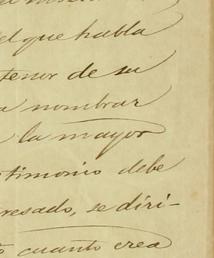 el que habla
tenor de su
a nombrar
la mayor
timonio debe
resado, se diri-
cuanto crea